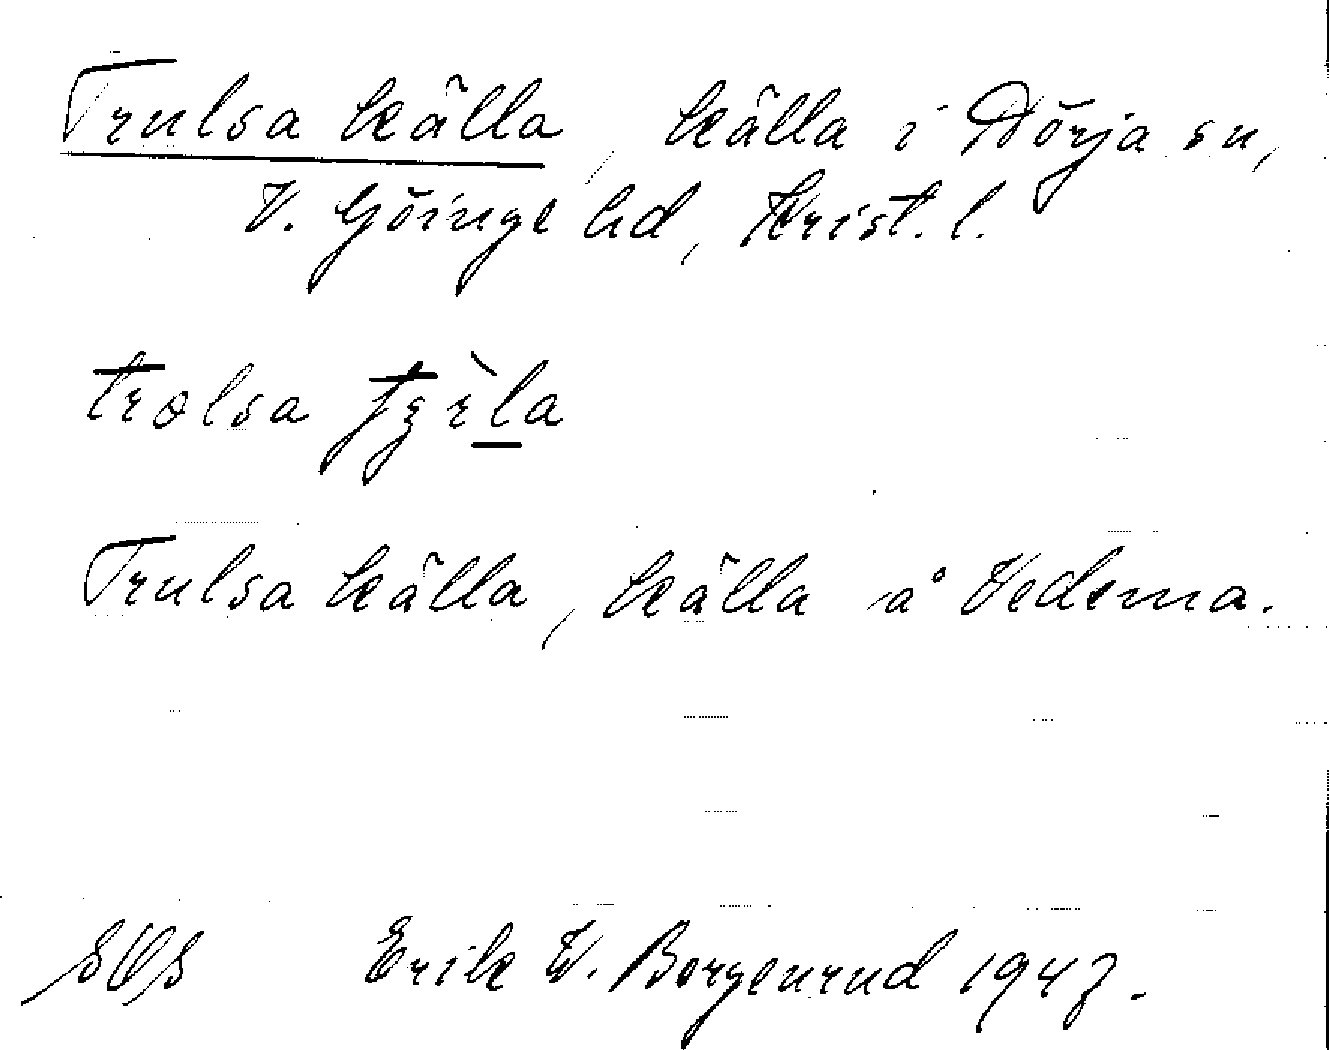 Trulsa källa, källa i Nörja sn,
V. Göinge hd, Krist. l.
trolsa
Trulsa källa, källa å Vedema.
Erik W. Borgenrud 1947.